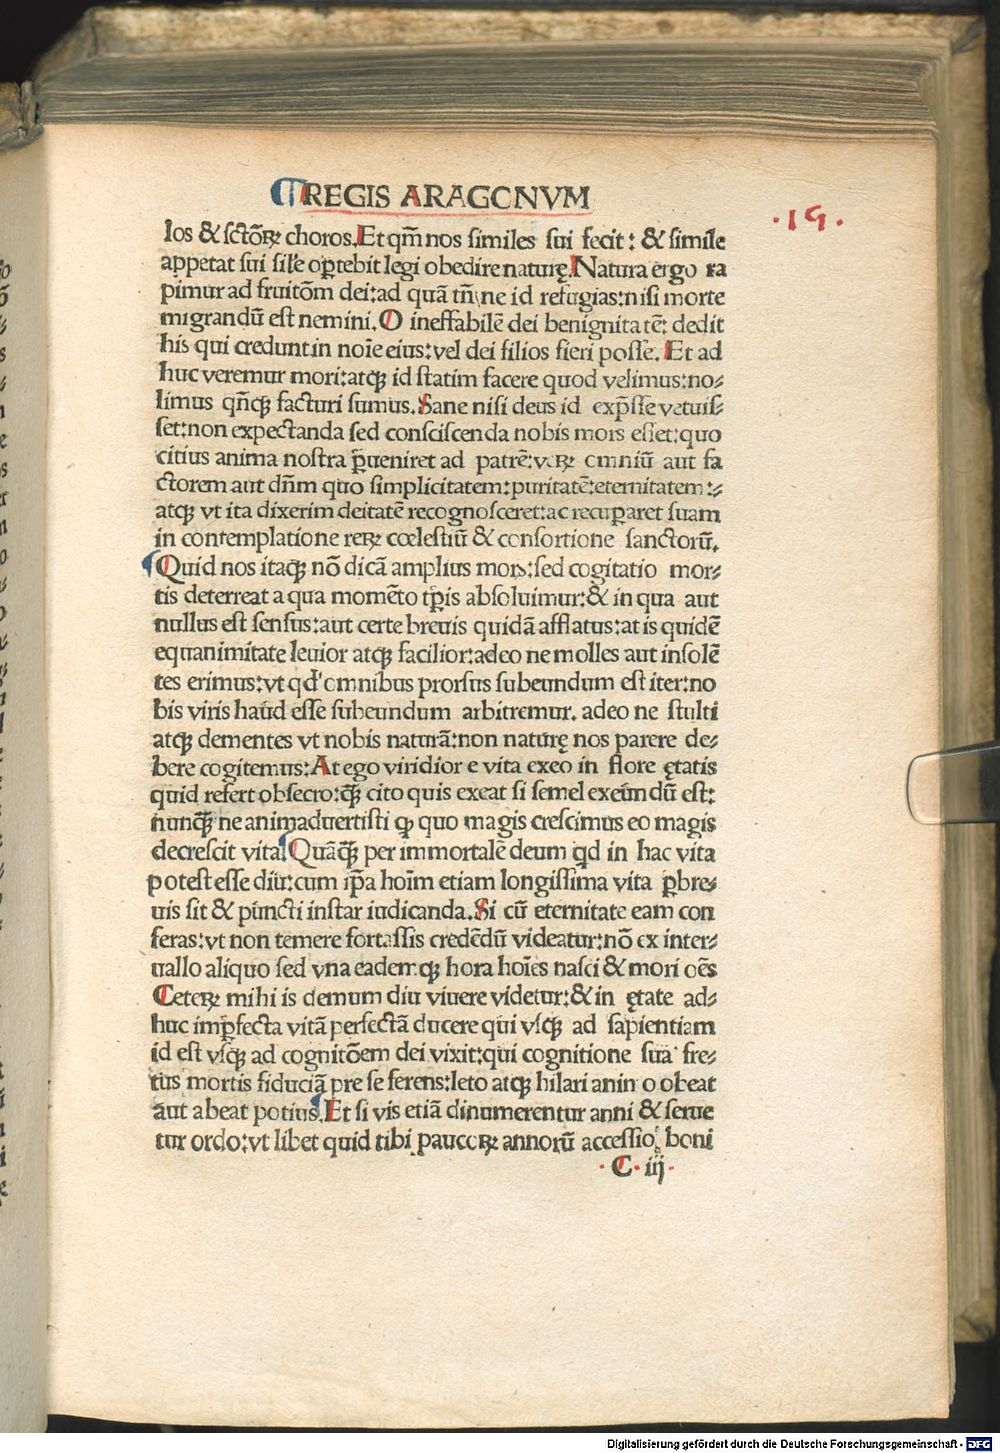 REGIS ARAGONVM
.19.
los & sctõꝝ choros. Et qm̃ nos similes sui fecit: & simile
appetat sui sil'e oꝑtebit legi obedire naturę. Natura ergo ra
pimur ad fruitõm dei: ad quã tñ ne id refugias: nisi morte
migrandũ est nemini. O ineffabilẽ dei benignitatẽ: dedit
his qui credunt in noĩe eius: vel dei filios fieri posse. Et ad
huc veremur mori: atqꝫ id statim facere quod velimus: no⸗
limus qñqꝫ facturi sumus. Sane nisi deus id exp̃sse vetuis⸗
set: non expectanda sed consciscenda nobis mors esset: quo
citius anima nostra p̃ueniret ad patrẽ: veꝝ omniũ aut fa
ctorem aut dñm quo simplicitatem: puritatẽ: eternitatem:⸗
atqꝫ vt ita dixerim deitatẽ recognosceret: ac recuꝑaret suam
in contemplatione reꝝ cœlestiũ & consortione sanctorũ.
Quid nos itaqꝫ nõ dicã amplius mors: sed cogitatio mor⸗
tis deterreat a qua momẽto tp̃is absoluimur: & in qua aut
nullus est sensus: aut certe breuis quidã afflatus: at is quidẽ
equanimitate leuior atqꝫ facilior: adeo ne molles aut insolẽ
tes erimus: vt qd' omnibus prorsus subeundum est iter: no
bis viris haud esse subeundum arbitremur. adeo ne stulti
atqꝫ dementes vt nobis naturã: non naturę nos parere de⸗
bere cogitemus: At ego viridior e vita exeo in flore ętatis
quid refert obsecro: q̃ꝫ cito quis exeat si semel exeũndũ est:
nunq̃ꝫ ne animaduertisti ꝙ quo magis crescimus eo magis
decrescit vita. Quãq̃ꝫ per immortalẽ deum qd in hac vita
potest esse diu: cum ip̃a hoĩm etiam longissima vita p̃bre⸗
uis sit & puncti instar iudicanda. Si cũ eternitate eam con
feras: vt non temere fortassis credẽdũ videatur: nõ ex inter⸗
uallo aliquo sed vna eademqꝫ hora hoĩes nasci & mori oẽs
Ceteꝝ mihi is demum diu viuere videtur: & in ętate ad⸗
huc imp̃fecta vitã perfectã ducere qui vsqꝫ ad sapientiam
id est vsqꝫ ad cognitõem dei vixit: qui cognitione sua fre⸗
tus mortis fiduciã pre se ferens: leto atqꝫ hilari animo obeat
aut abeat potius. Et si vis etiã dinumerentur anni & serue
tur ordo: vt libet quid tibi paucoꝝ annorũ accessio boni
.C. iij.
Digitalisierung gefördert durch die Deutsche Forschungsgemeinschaft - DFG